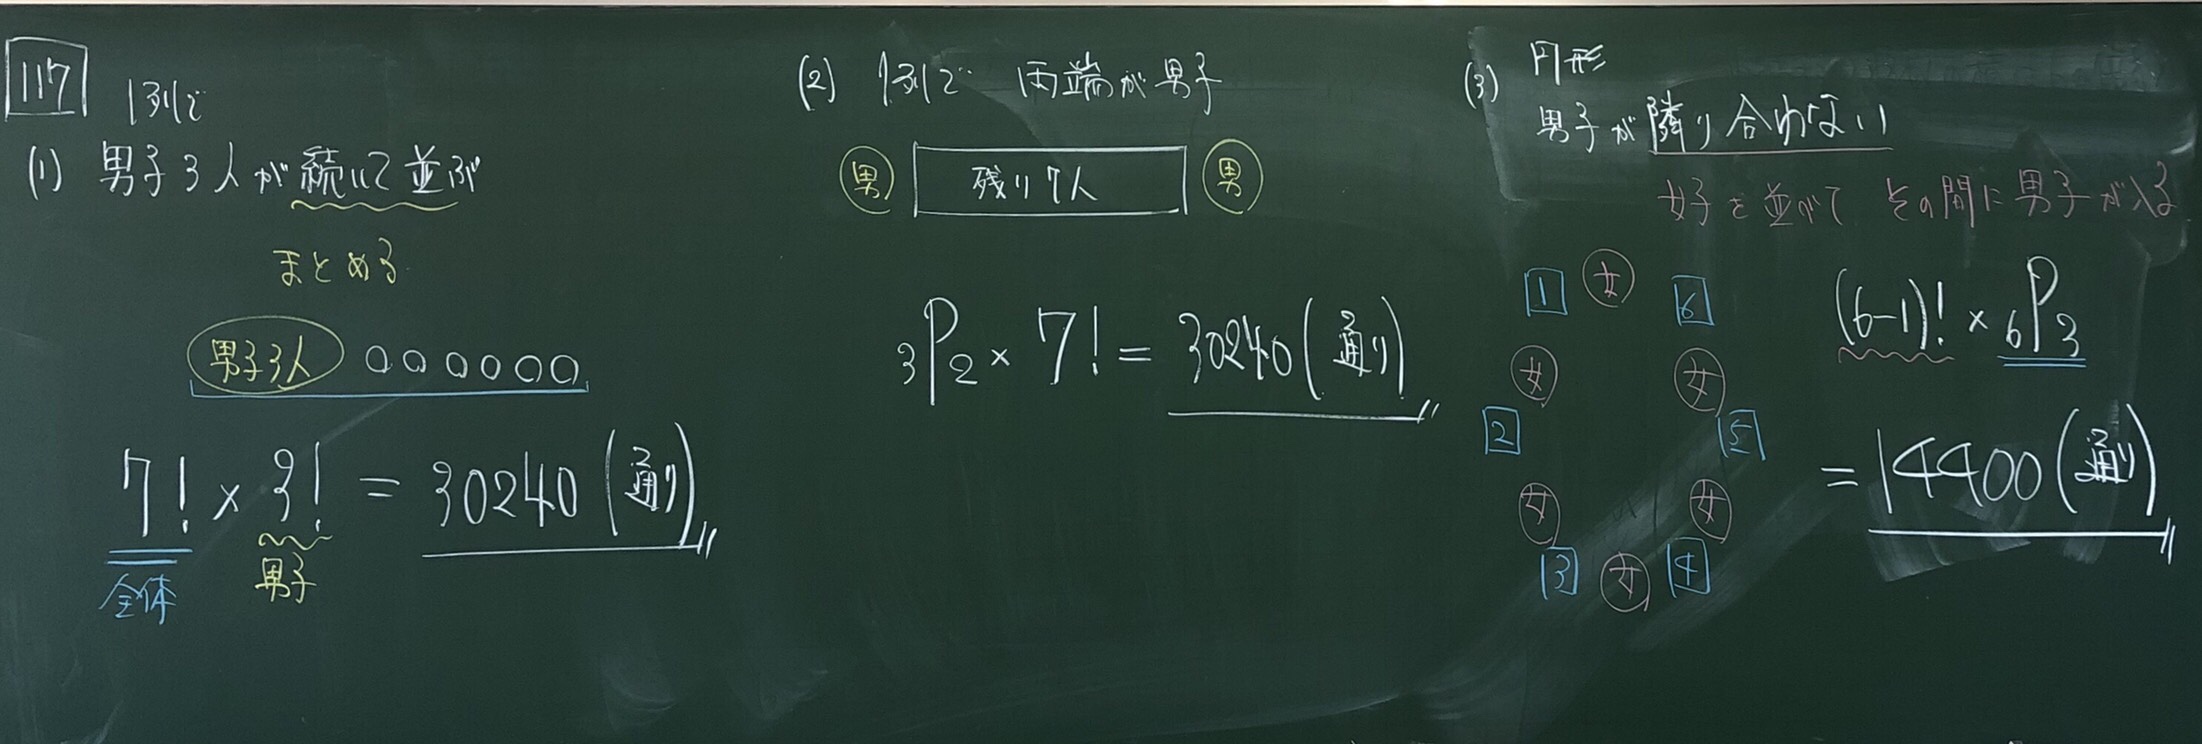 117
1列で
(1) 男子3人が続いて並ぶ
まとめる
男子3人 ○○○○○○
7! × 3! = 30240(通り)
全体 男子
(2) 1列で 両端が男子
男 残り7人 男
₃P₂ × 7! = 30240(通り)
(3) 円形
男子が隣り合わない
女子を並べて その間に男子が入る
1 女 6
女 女
2 5
女 女
3 女 4
(6-1)! × ₆P₃
= 14400(通り)